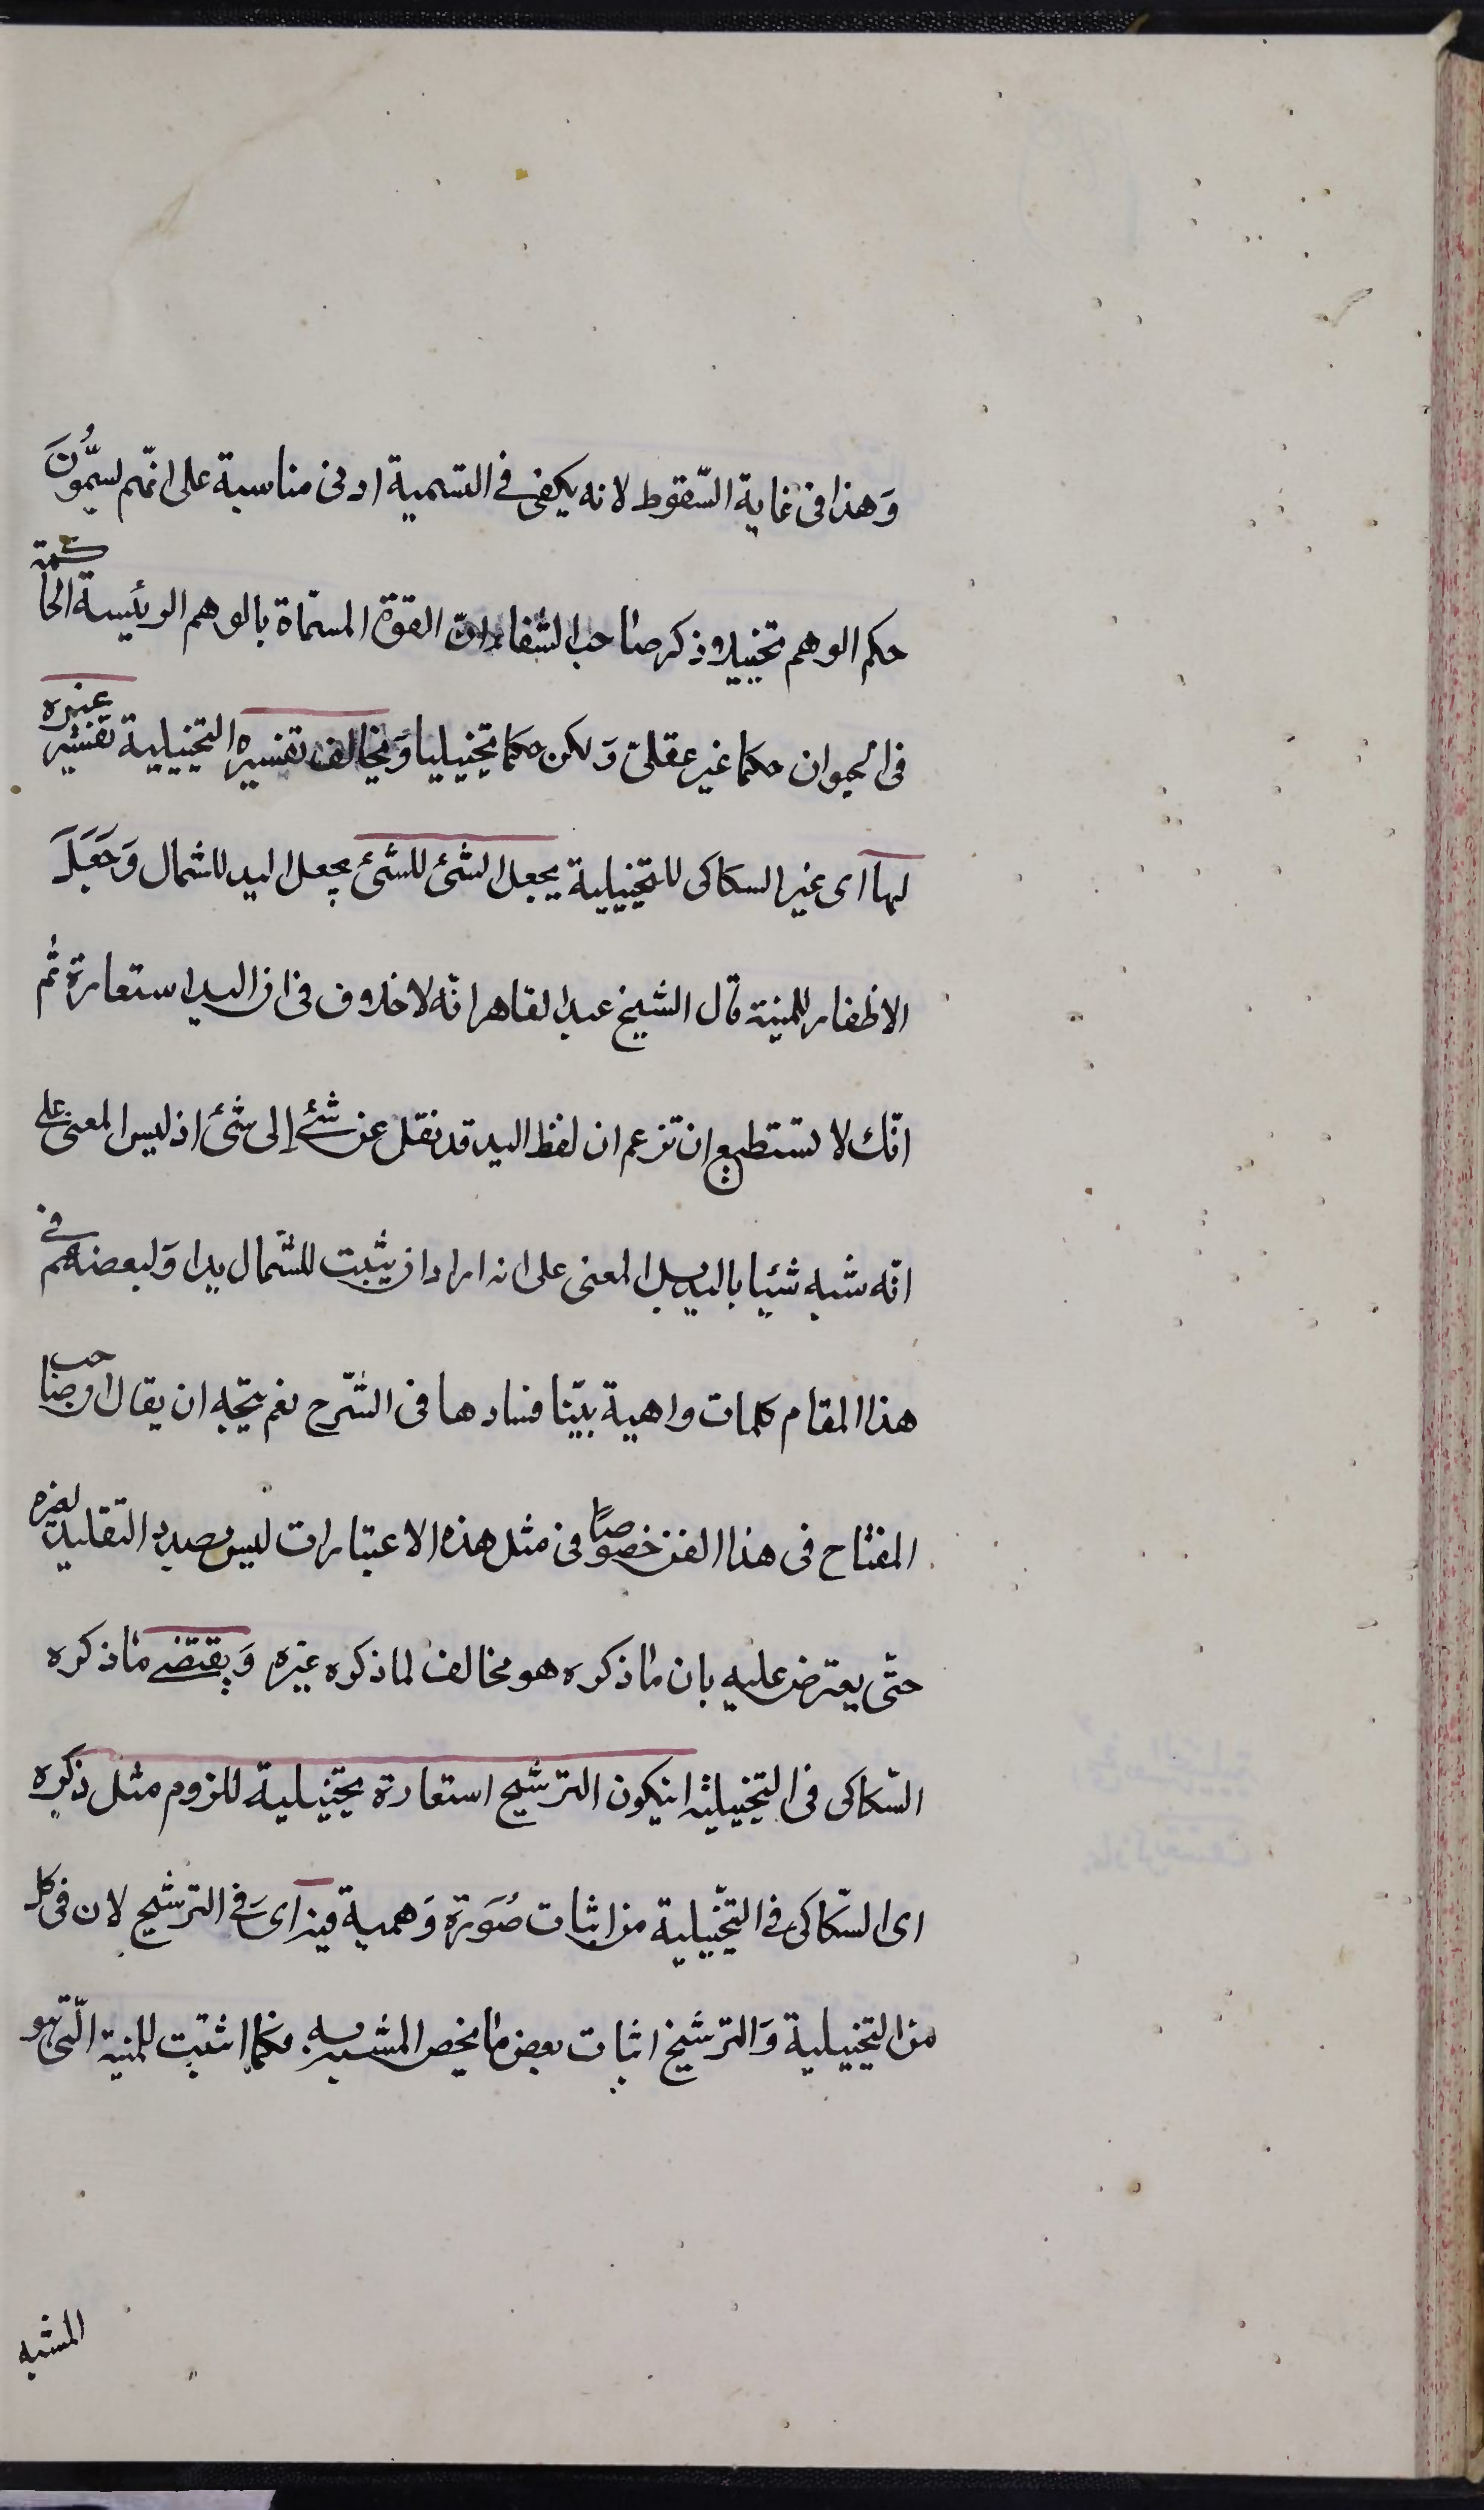 وَهذا فى غاية السّقوط لانه يكفى فى التسمية ادنى مناسبة على انهّم يسمُّونَ
حكم الوهم تخييلا وذكر صاحب الشفاء انّ القوة المسمّاة بالوهم الرئيسة الحاكمة
فى الحيوان حكما غير عقلىّ وَلكن حكما تخييليا وَيخالف تفسيره التخييلية تفسير غيره
لها اى غير السكاكى للتخييلية بجعل الشئ للشئ بجعل اليد للشمال وَجَعَلَ
الاظفار للمنية قال الشيخ عبد القاهر انّه لا خلاف فى ان اليد استعارة ثُم
انّك لا تستطيع ان تزعم ان لفظ اليد قد نقل عن شئ إلى شئ اذ ليس المعنى على
انّه شبه شيئا باليد بل المعنى على انه اراد ان يثبت للشّمال يدا وَلبعضهم فى
هذا المقام كلمات واهية بيّنا فسادها فى الشّرح نعم يتّجه ان يقال ان صاحب
المفتاح فى هذا الفن خصوصًا فى مثل هذه الاعتبارات ليس بصدد التقليد لغيره
حتّى يعترض عليه بان ما ذكره هو مخالف لما ذكره غيره وَيقتضى ما ذكره
السّكاكى فى التخييلية انيكون الترشيح استعارة تخييلية للزوم مثل ذكره
اى السّكاكى فى التخّييلية من اثبات صُوَرة وَهمية فيه اى فى الترشيح لان فى كل
من التخييلية وَالترشيح اثبات بعض ما يخص المشبه به فكما اثبت للمنية الّتى هو
المشبه